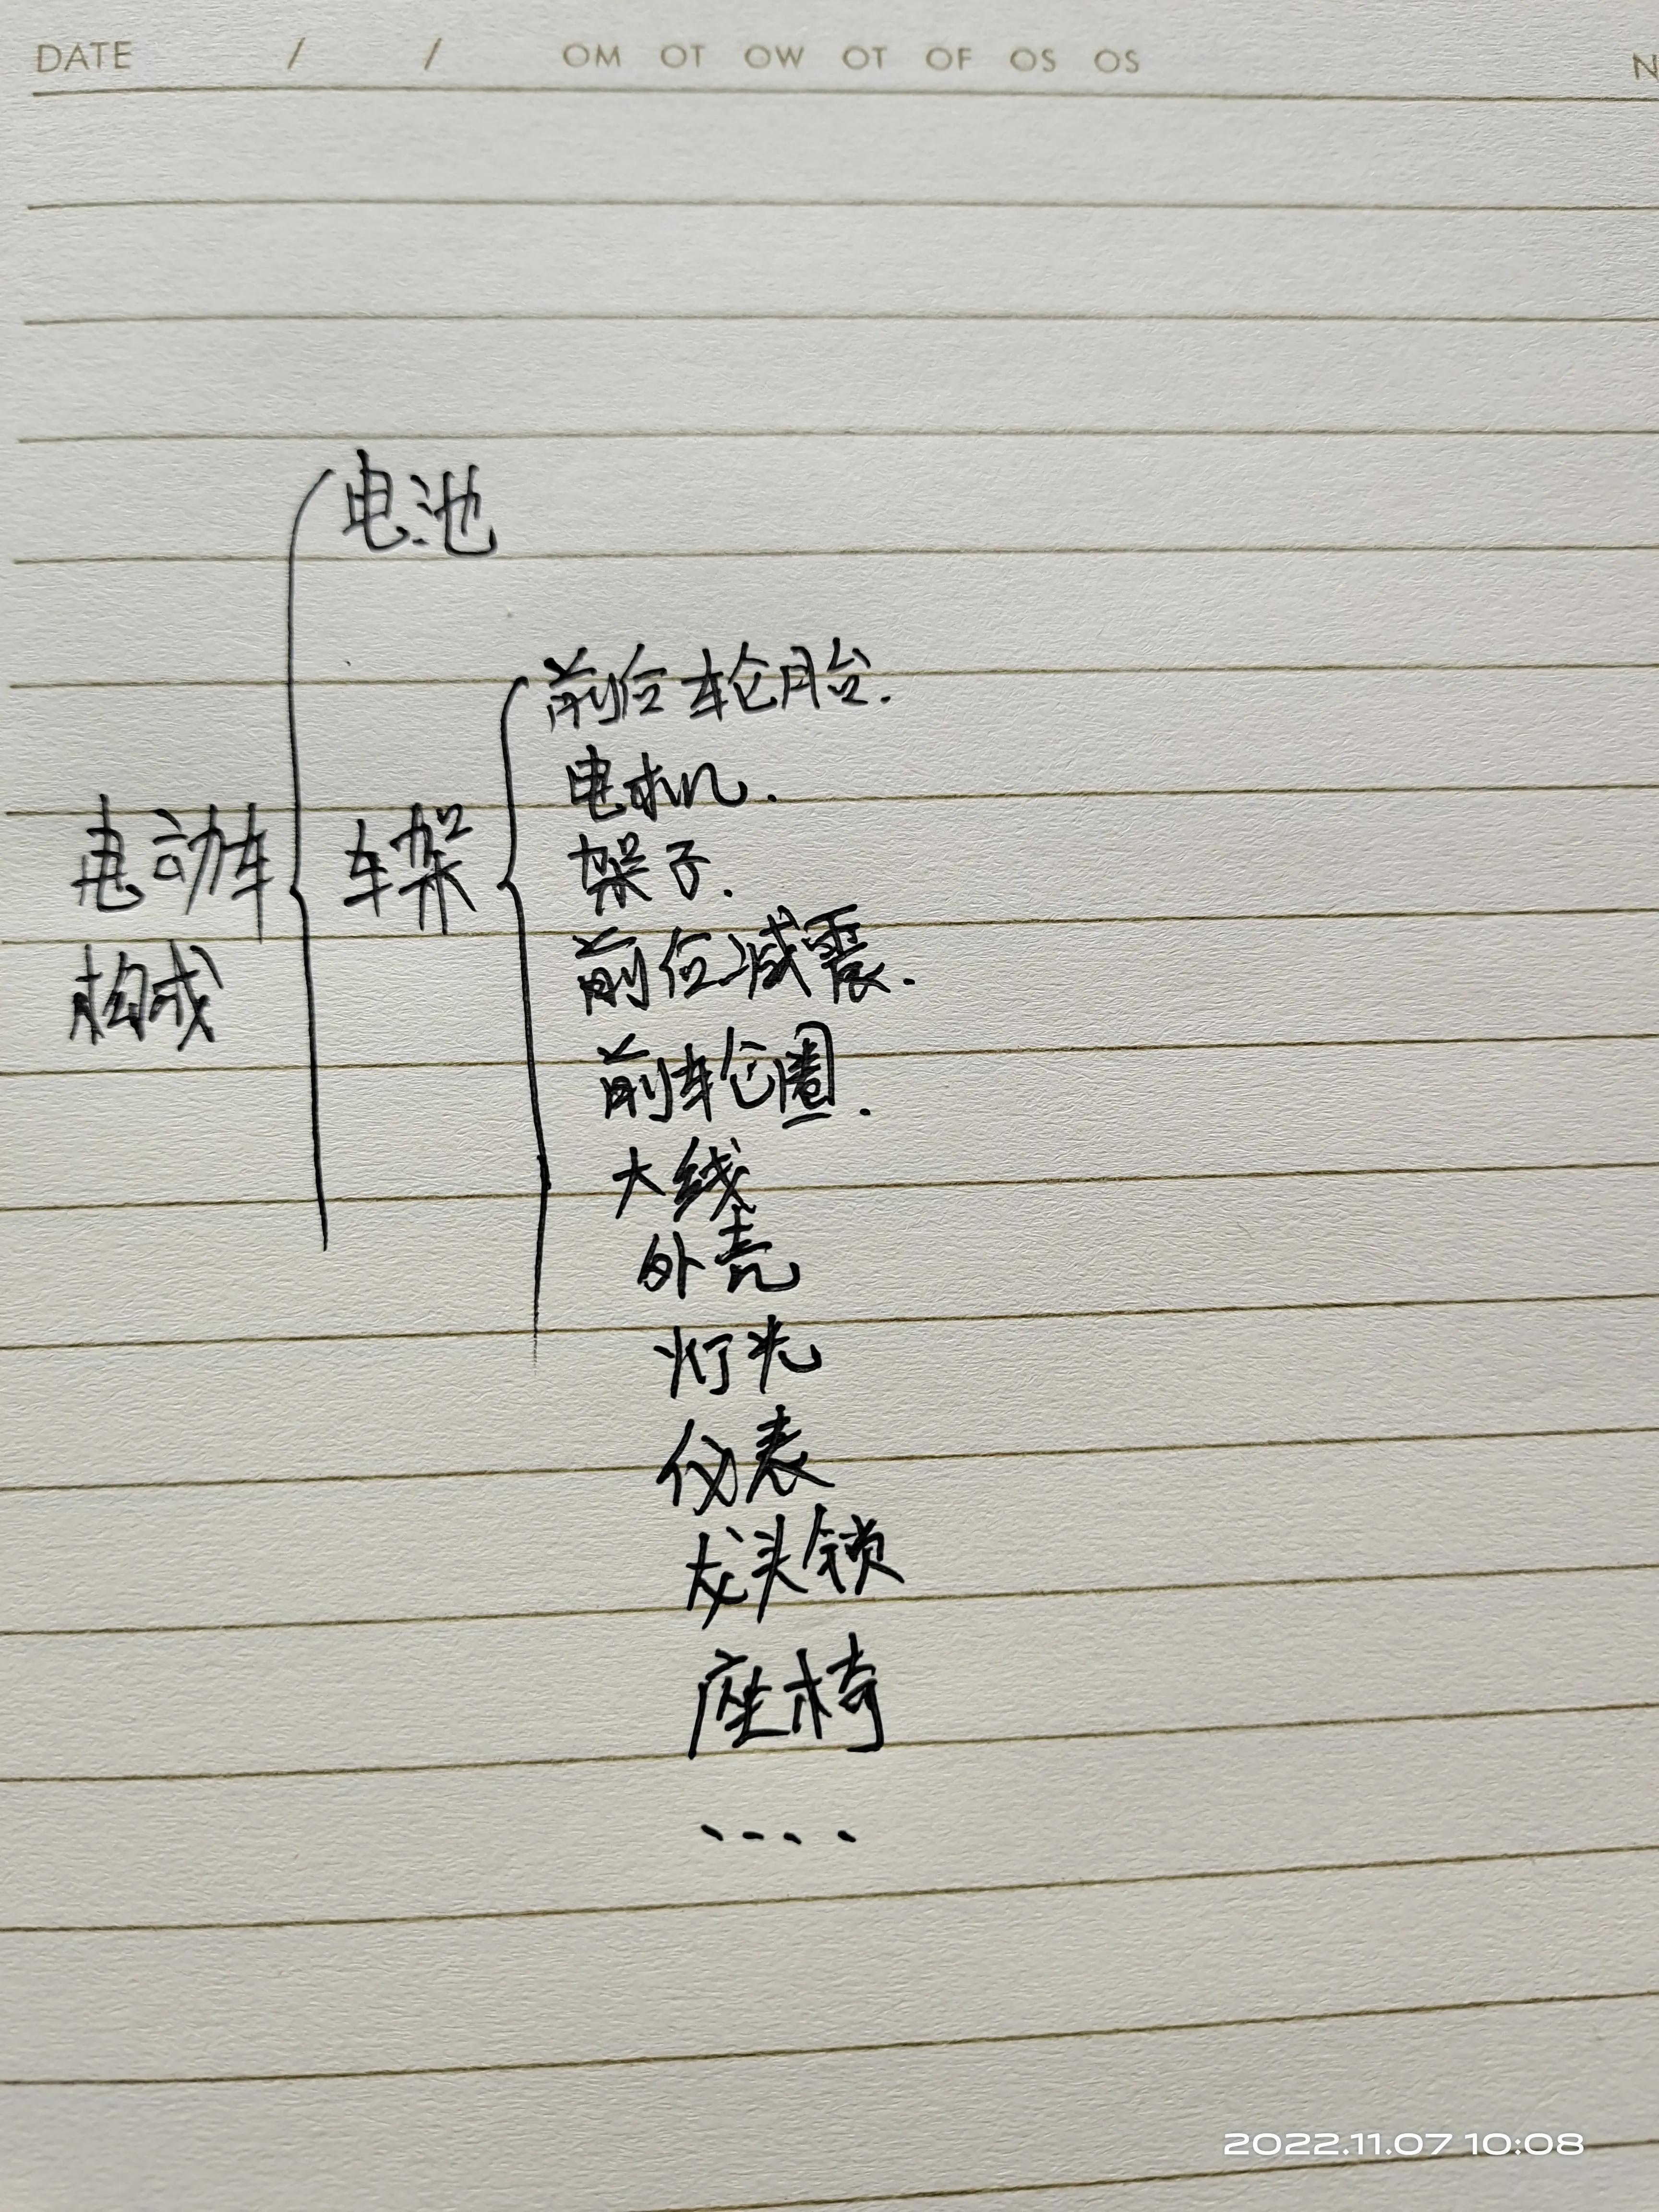 DATE / / OM OT OW OT OF OS OS N
电池
前后轮胎.
电机.
电动车
车架
架子.
构成
前后减震.
前轮圈.
大线
外壳
灯光
仪表
龙头锁
座椅
....
2022.11.07 10:08